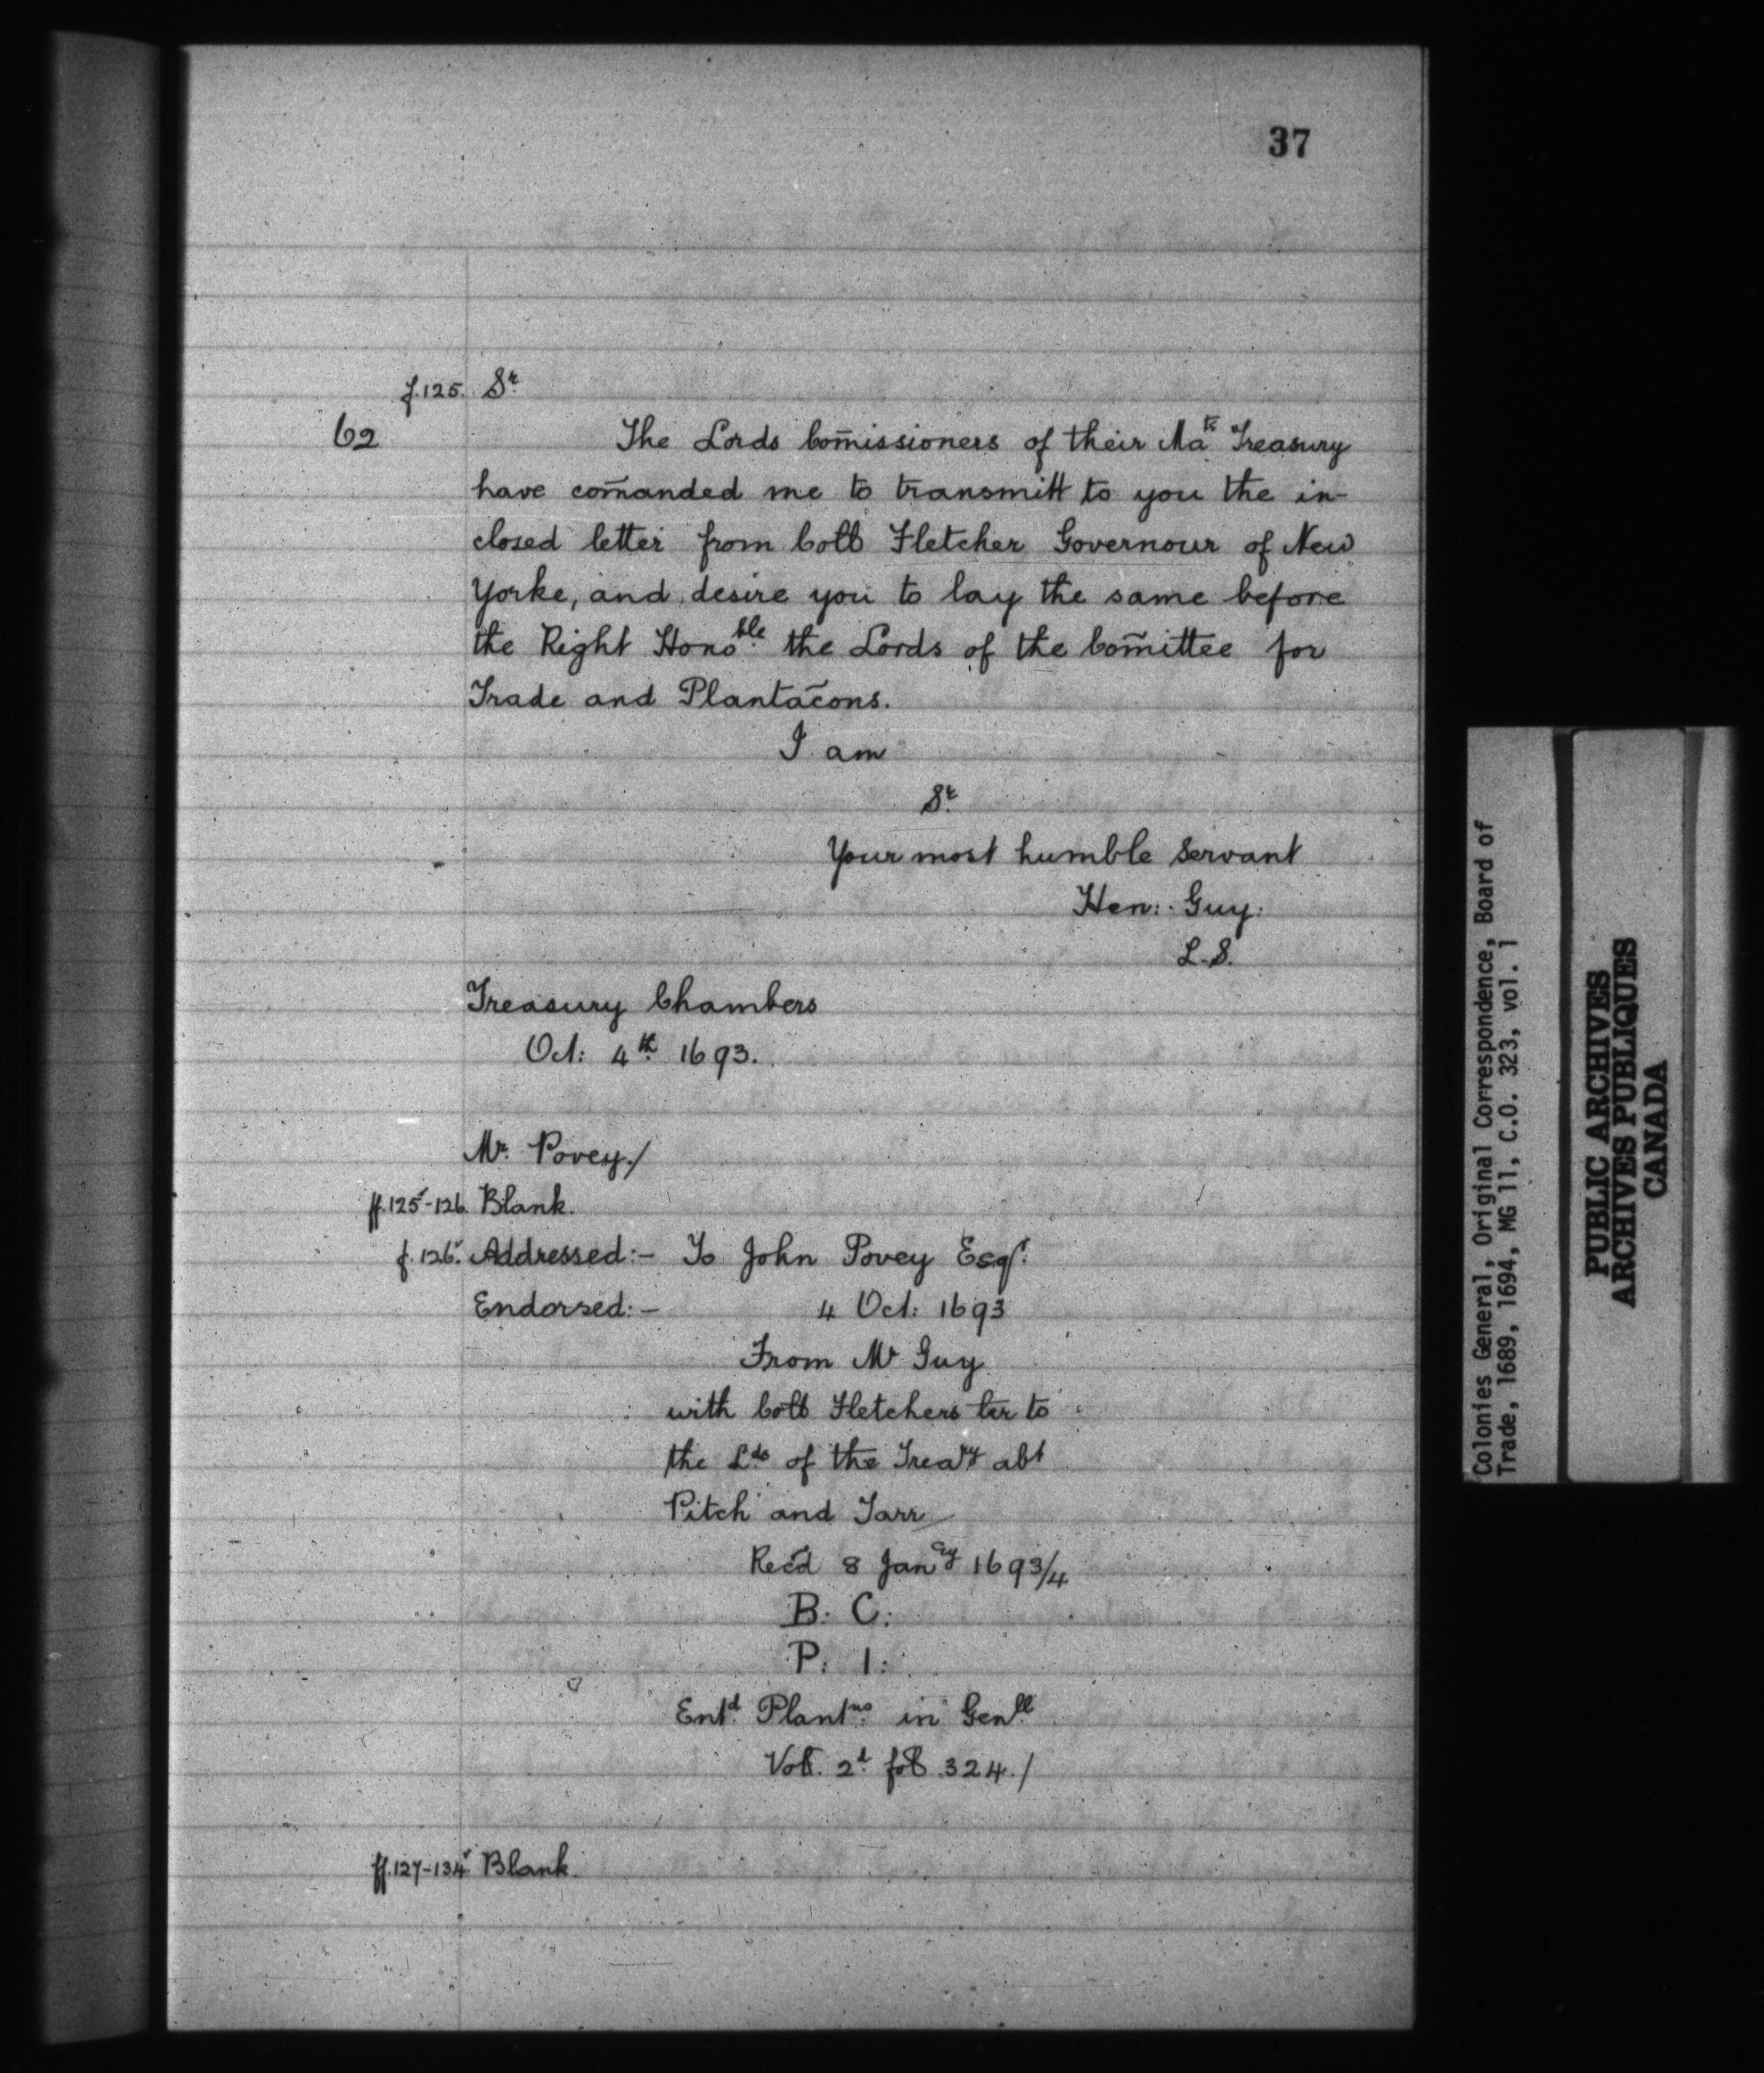 37
f.125. Sr.
62 The Lords Com̄issioners of their Mats. Treasury
have com̄anded me to transmitt to you the in-
closed letter from Coll Fletcher Governour of New
Yorke, and desire you to lay the same before
the Right Honoble. the Lords of the Com̄ittee for
Trade and Plantac̄ons.
I am
Sr.
Your most humble Servant
Hen: Guy.
L.S.
Treasury Chambers
Oct: 4th. 1693.
Mr. Povey./
ff.125v-126. Blank.
f.126v. Addressed:- To John Povey Esqr.
Endorsed:- 4 Oct: 1693
From Mr Guy
with Coll Fletchers ler to
the Lds of the Treary abt
Pitch and Tarr
Rec̄d 8 Janry 1693/4
B. C.
P. 1.
Entd. Plantns. in Genll.
Vol. 2d. fol 324./
ff.127-134v. Blank.
Colonies General, Original Correspondence, Board of
Trade, 1689, 1694, MG 11, C.O. 323, vol. 1
PUBLIC ARCHIVES
ARCHIVES PUBLIQUES
CANADA